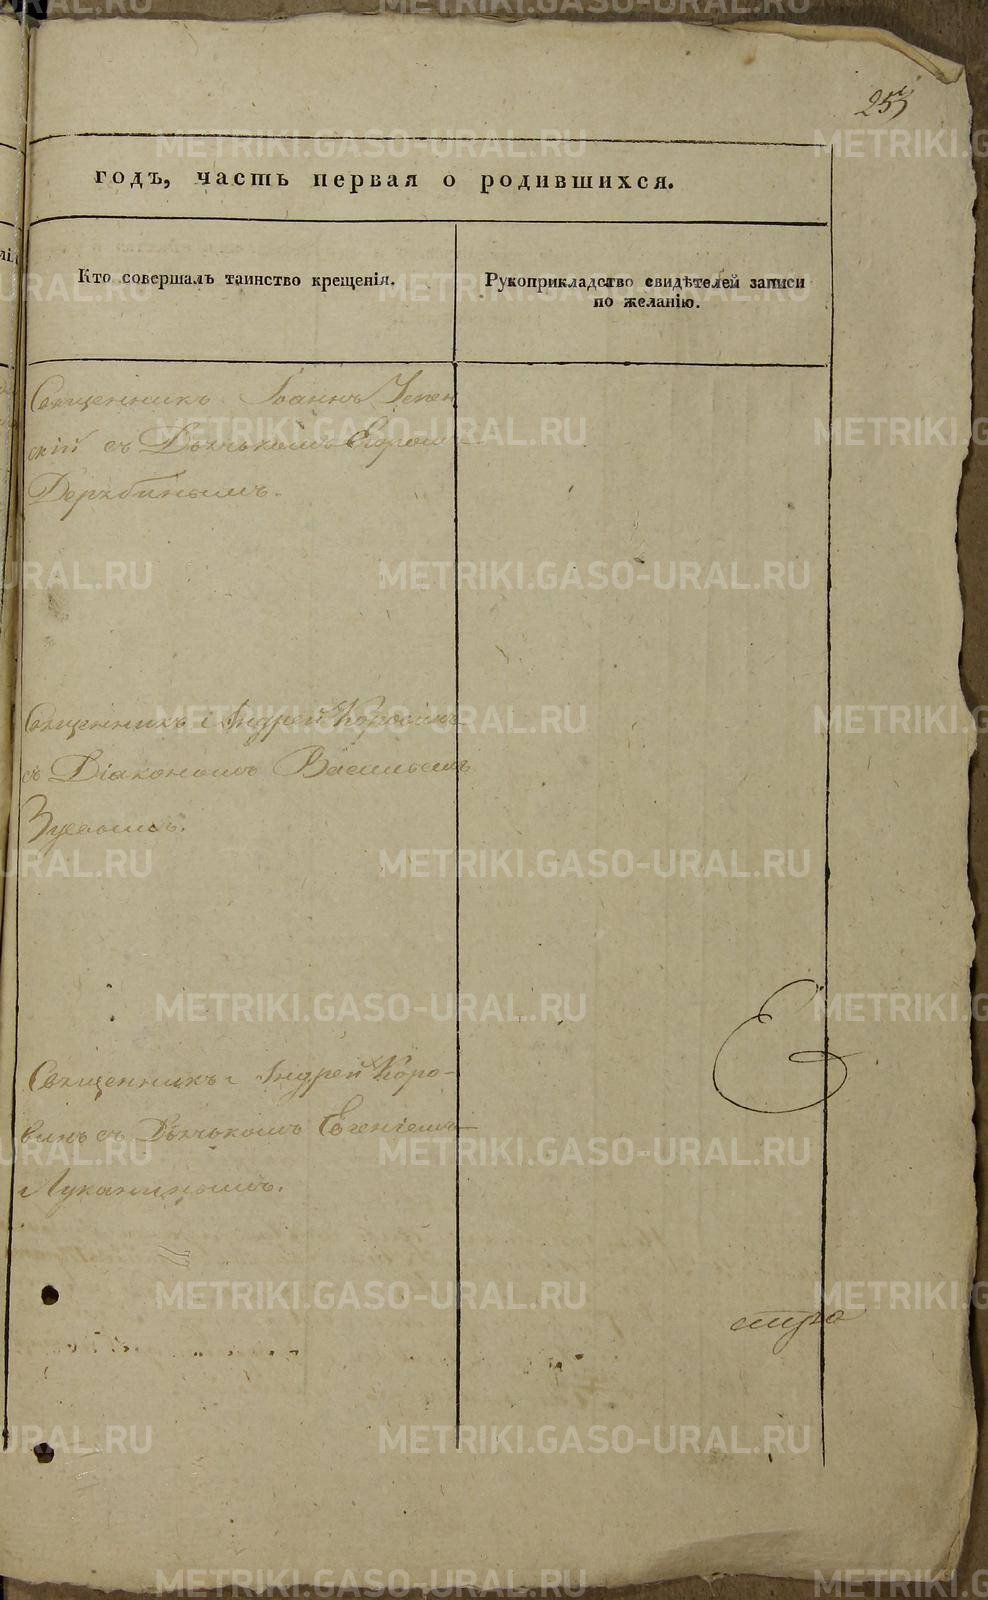 255
годъ, часть первая о родившихся.
Кто совершалъ таинство крещенія.
Рукоприкладство свидѣтелей записи
по желанію.
Священникъ Іоаннъ Успен
скій съ Дьячькомъ Егоромъ
Дерябинымъ.
Священникъ Андрей Коровинъ
съ Діакономъ Васильемъ
Зуевымъ.
Священникъ Андрей Коро-
винъ съ Дьячькомъ Евгеніемъ
Луканинымъ.
METRIKI.GASO-URAL.RU